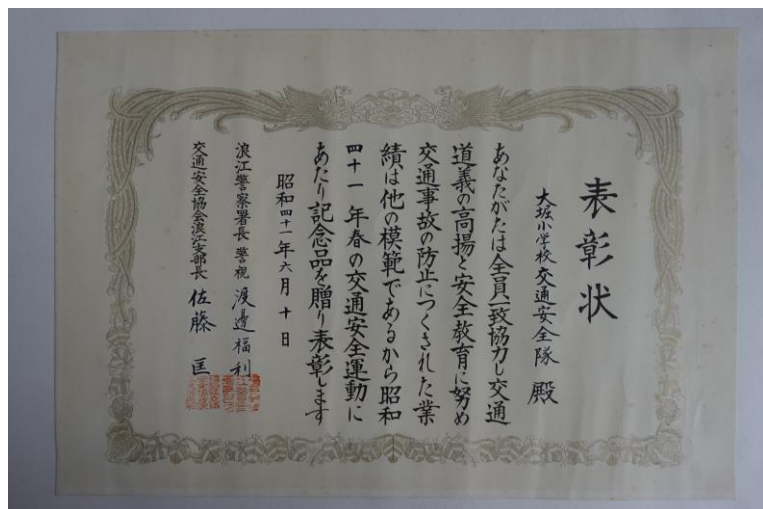 表彰状
大堀小学校交通安全隊 殿
あなたがたは全員一致協力し交通
道義の高揚と安全教育に努め
交通事故の防止につくされた業
績は他の模範であるから昭和
四十一年春の交通安全運動に
あたり記念品を贈り表彰します
昭和四十一年六月十日
浪江警察署長 警視 渡邊福利
交通安全協会浪江支部長 佐藤匡